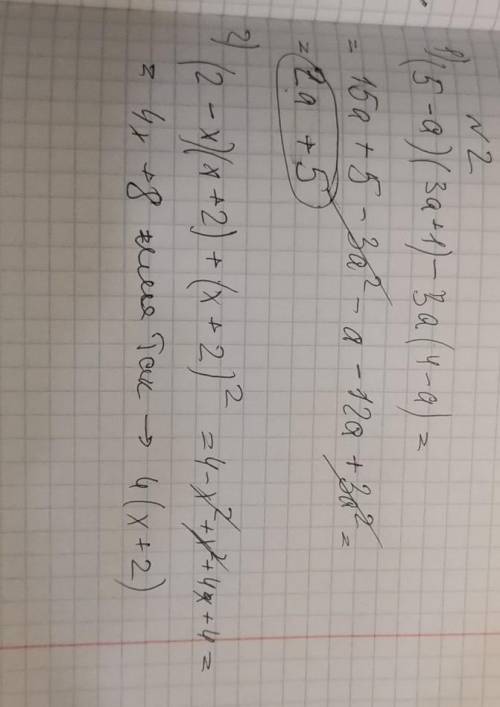 N 2
1) (5 - a)(3a + 1) - 3a(4 - a) =
= 15a + 5 - 3a² - a - 12a + 3a² =
= 2a + 5
2) (2 - x)(x + 2) + (x + 2)² = 4 - x² + x² + 4x + 4 =
= 4x + 8 или так → 4(x + 2)